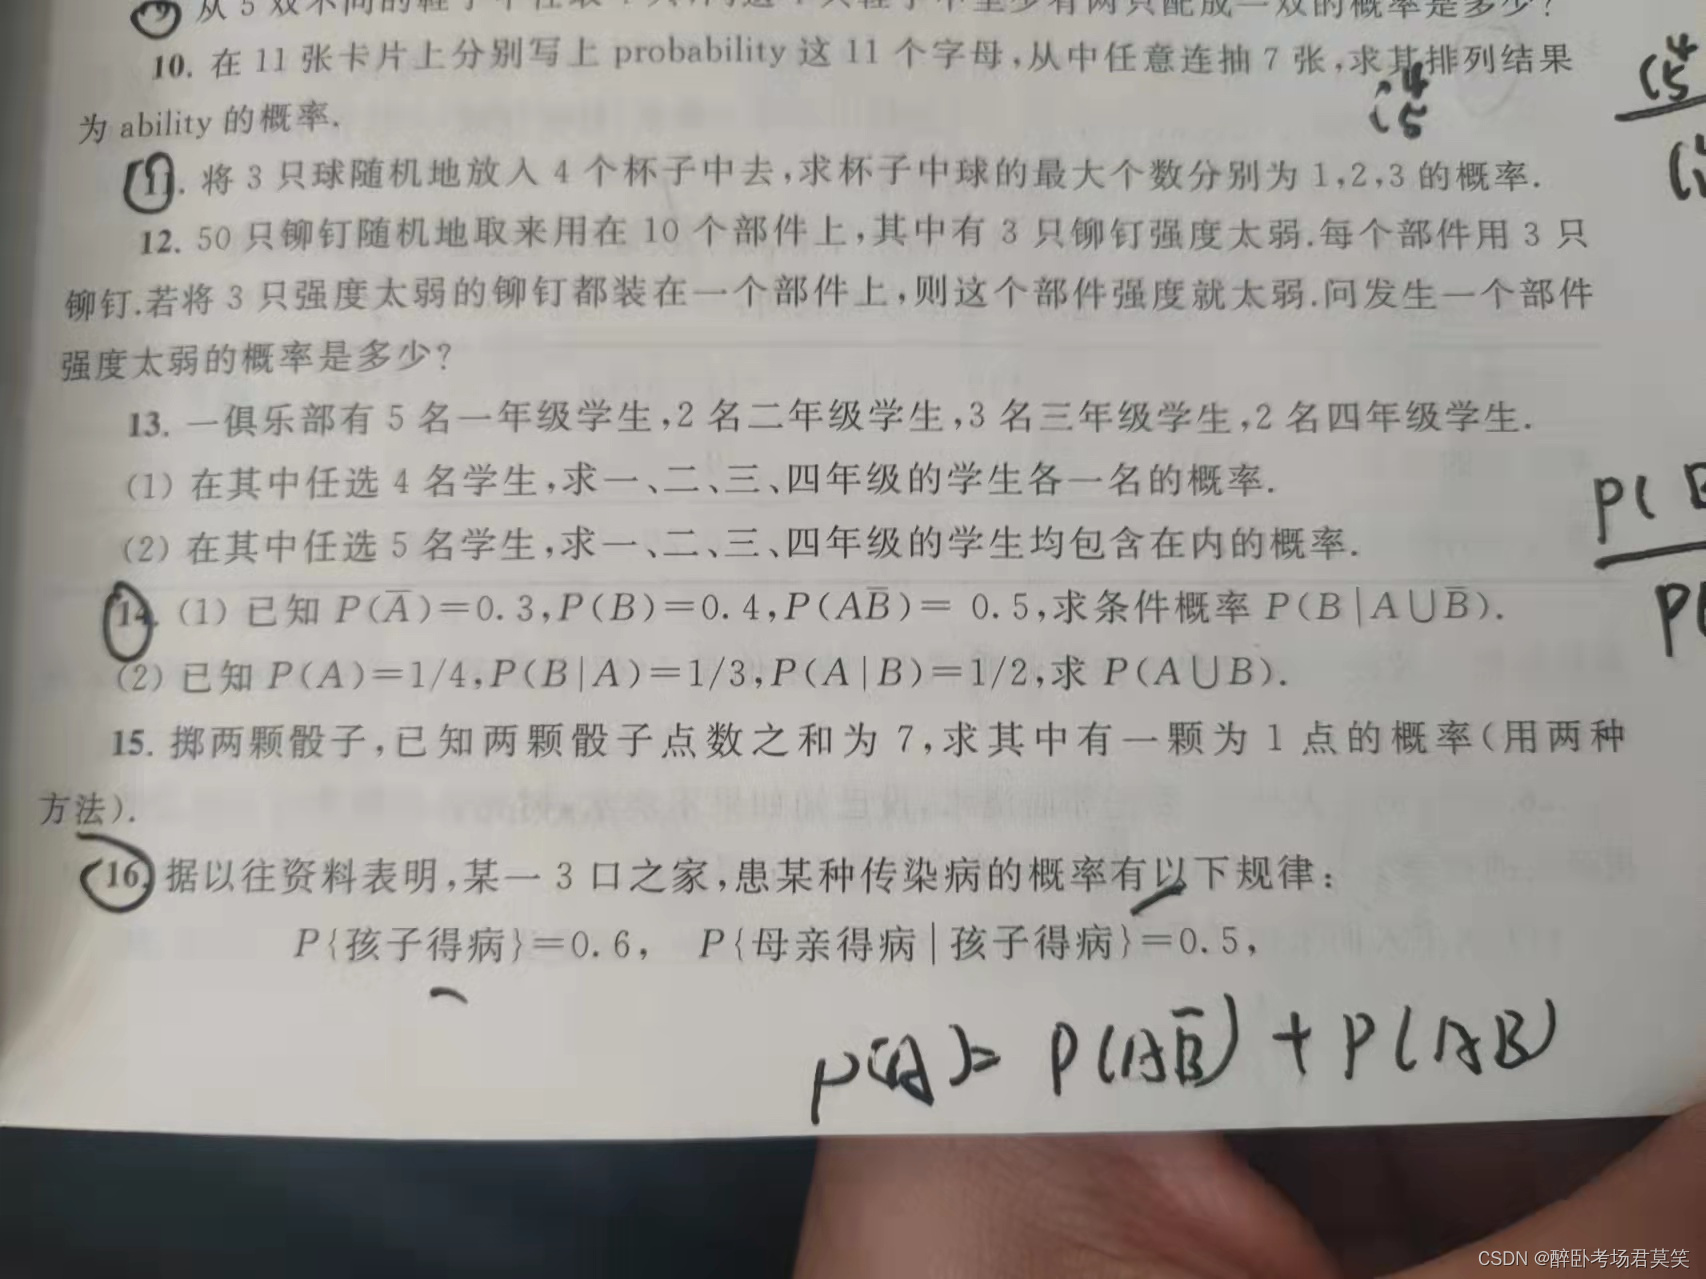 从5双不同的鞋子中任取4只,问这4只鞋子中至少有两只配成一双的概率是多少?
10. 在11张卡片上分别写上probability这11个字母,从中任意连抽7张,求其排列结果
为ability的概率.
11. 将3只球随机地放入4个杯子中去,求杯子中球的最大个数分别为1,2,3的概率.
12. 50只铆钉随机地取来用在10个部件上,其中有3只铆钉强度太弱.每个部件用3只
铆钉.若将3只强度太弱的铆钉都装在一个部件上,则这个部件强度就太弱.问发生一个部件
强度太弱的概率是多少?
13. 一俱乐部有5名一年级学生,2名二年级学生,3名三年级学生,2名四年级学生.
(1) 在其中任选4名学生,求一、二、三、四年级的学生各一名的概率.
(2) 在其中任选5名学生,求一、二、三、四年级的学生均包含在内的概率.
14. (1) 已知 P(A̅)=0.3,P(B)=0.4,P(AB̅)= 0.5,求条件概率 P(B|A∪B̅).
(2) 已知 P(A)=1/4,P(B|A)=1/3,P(A|B)=1/2,求 P(A∪B).
15. 掷两颗骰子,已知两颗骰子点数之和为7,求其中有一颗为1点的概率(用两种
方法).
16. 据以往资料表明,某一3口之家,患某种传染病的概率有以下规律:
P{孩子得病}=0.6, P{母亲得病|孩子得病}=0.5,
P(A)= P(AB̅)+P(AB)
CSDN @醉卧考场君莫笑